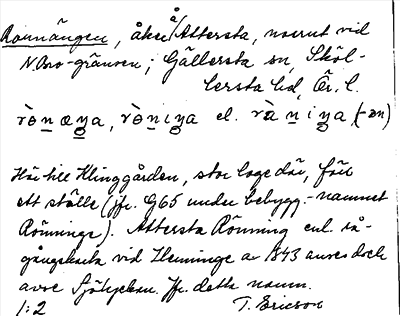 Rönnängen, åker å Attersta, norrut vid
N. Bro-gränsen; Gällersta sn, Sköl-
lersta hd, Ör. l.
rònæŋa, rò̀niŋa el. rà̀niŋa (-ən)
Hör till Klinggården, stor loge där, förr
ett ställe (jfr. G65 under bebygg.-namnet
Rönninge). Attersta Rönning enl. rå-
gångskarta vid Heminge av 1843 anses dock
avse Sjötyckan. Jfr. detta namn.
1:2 T. Ericson